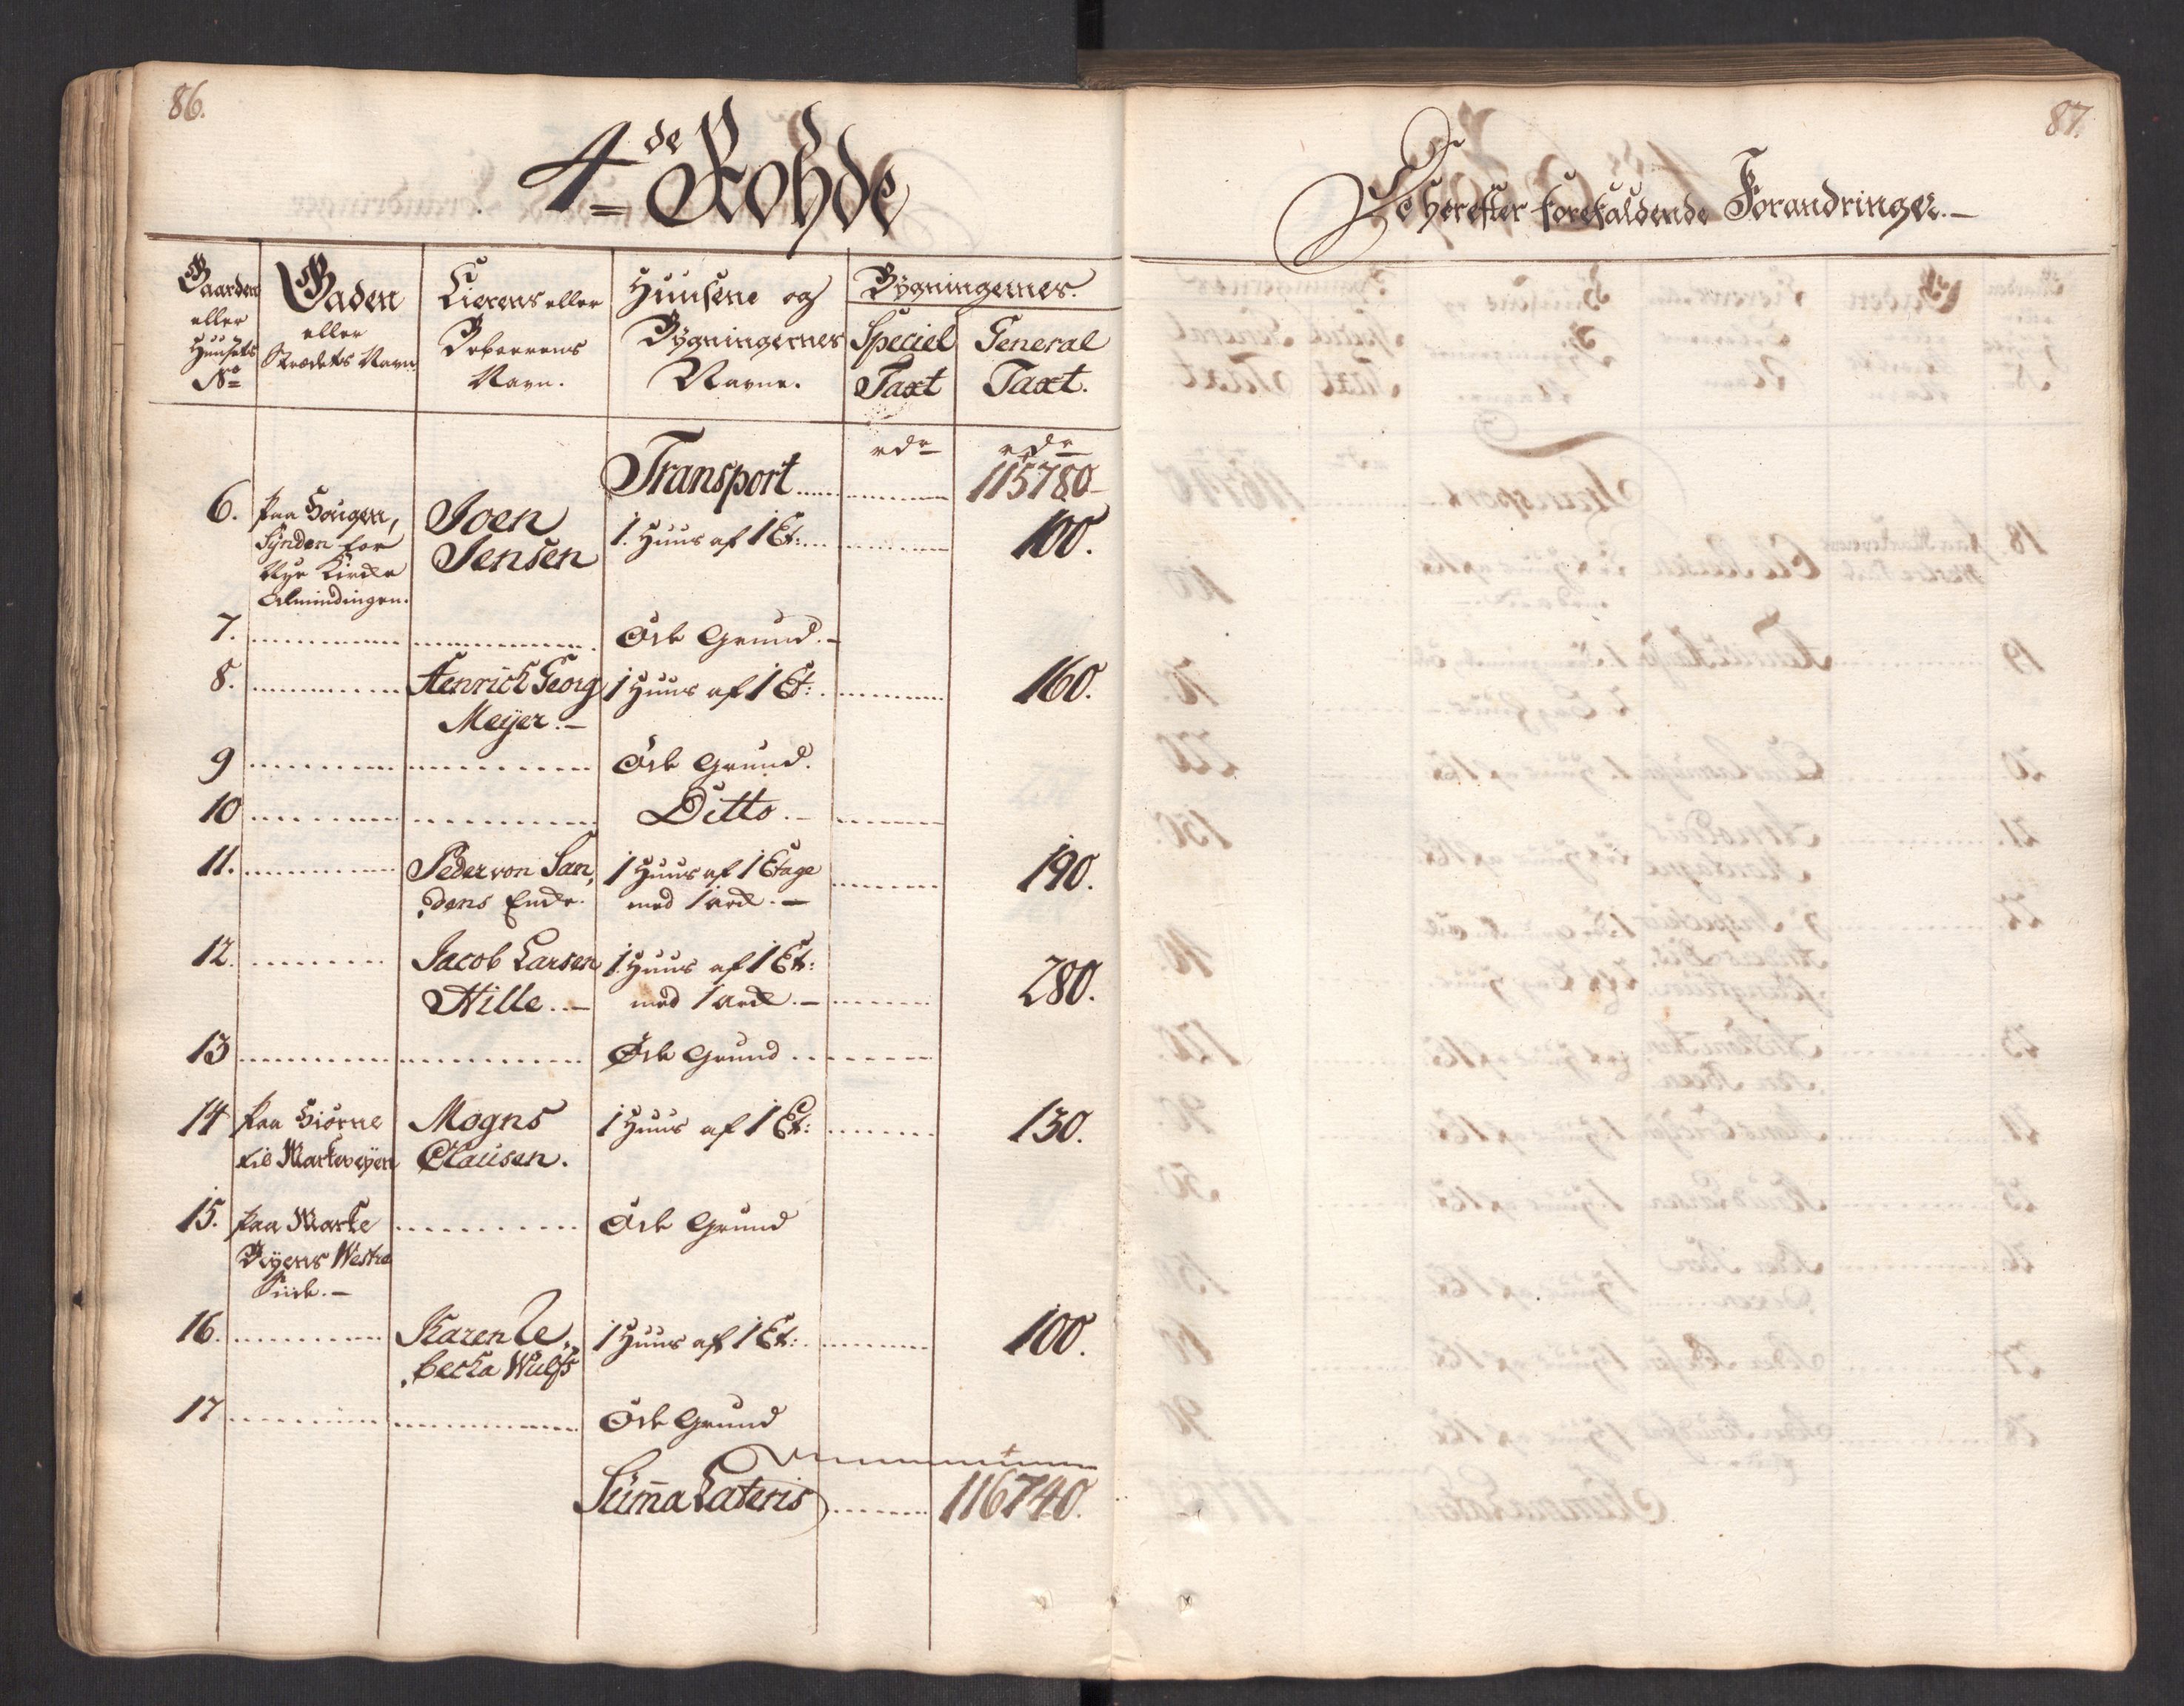 86.
4de Rohde
Gaarden eller Huusets No
Gaden eller Strædets Navn
Eierens eller Beboerens Navn.
Huusene og Bygningernes Navne.
Bygningernes.
Speciel Taxt
General Taxt.
rdr rdr
Transport 115780
6. paa Hougen, Joen 1. Huus af 1 Et: 100.
Synden for Jensen
Nye Kirke
Almindingen.
7. Øde Grund.
8. Henrich Georg 1 Huus af 1 Et: 160.
Meyer.
9 Øde Grund.
10 Ditto.
11. Peder von San, 1 Huus af 1 Etage 190.
dens Ende. med 1 Ark.
12. Jacob Larsen 1. Huus af 1 Et:
Hille. med 1 Ark. 280.
13 Øde Grund
14 paa Hiørne Mogns 1 Huus af 1 Et: 130.
til Markeveyen Clausen.
15. paa Marke Øde Grund
Veyens Westre
Siide.
16. Karen Re, 1 Huus af 1 Et: 100.
becka Wulfs
17 Øde Grund
Summa Lateris 116740.
87.
De herefter forefaldende Forandringer.